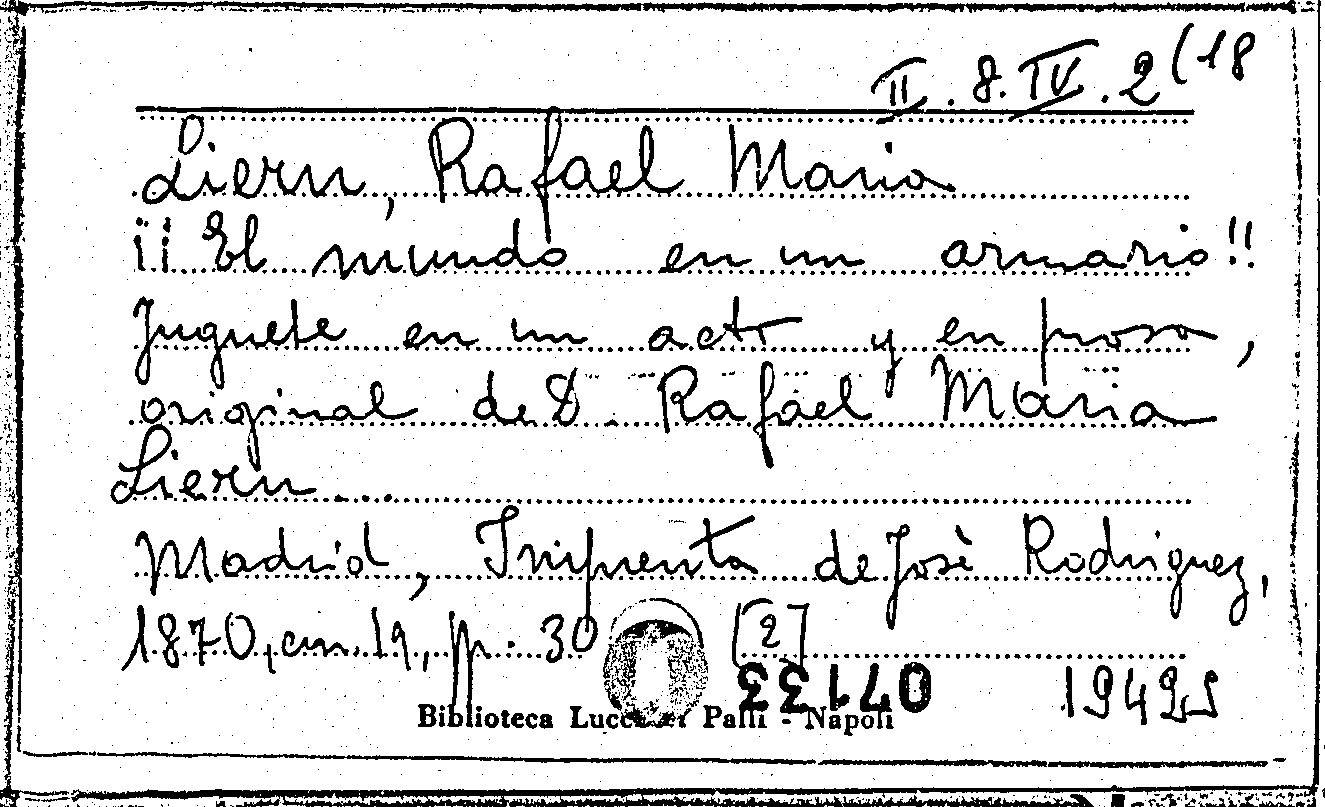 II. 8. IV. 2(18
Liern, Rafael Maria
¡¡ El mundo en un armario!!
Juguete en un acto y en prosa,
original de D. Rafael Maria
Liern...
Madrid, Imprenta de Josè Rodriguez,
1870, cm. 19, pp. 30 [2]
07133
Biblioteca Lucchesi Palli - Napoli